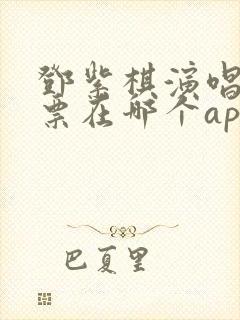 鄧紫棋演唱
票在哪个ap
巴夏里